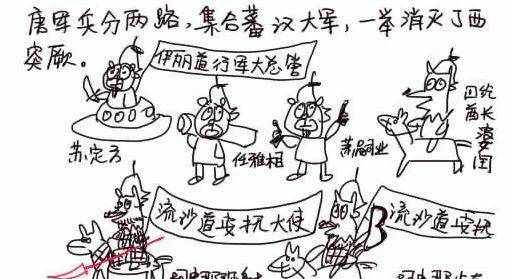 唐军兵分两路，集合蕃汉大军，一举消灭了西
突厥。
伊丽道行军大总管
苏定方
任雅相
萧嗣业
回纥
酋长
婆闰
流沙道安抚大使
流沙道安抚